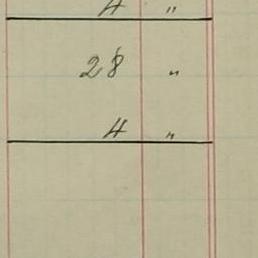 4 "
28 "
4 "